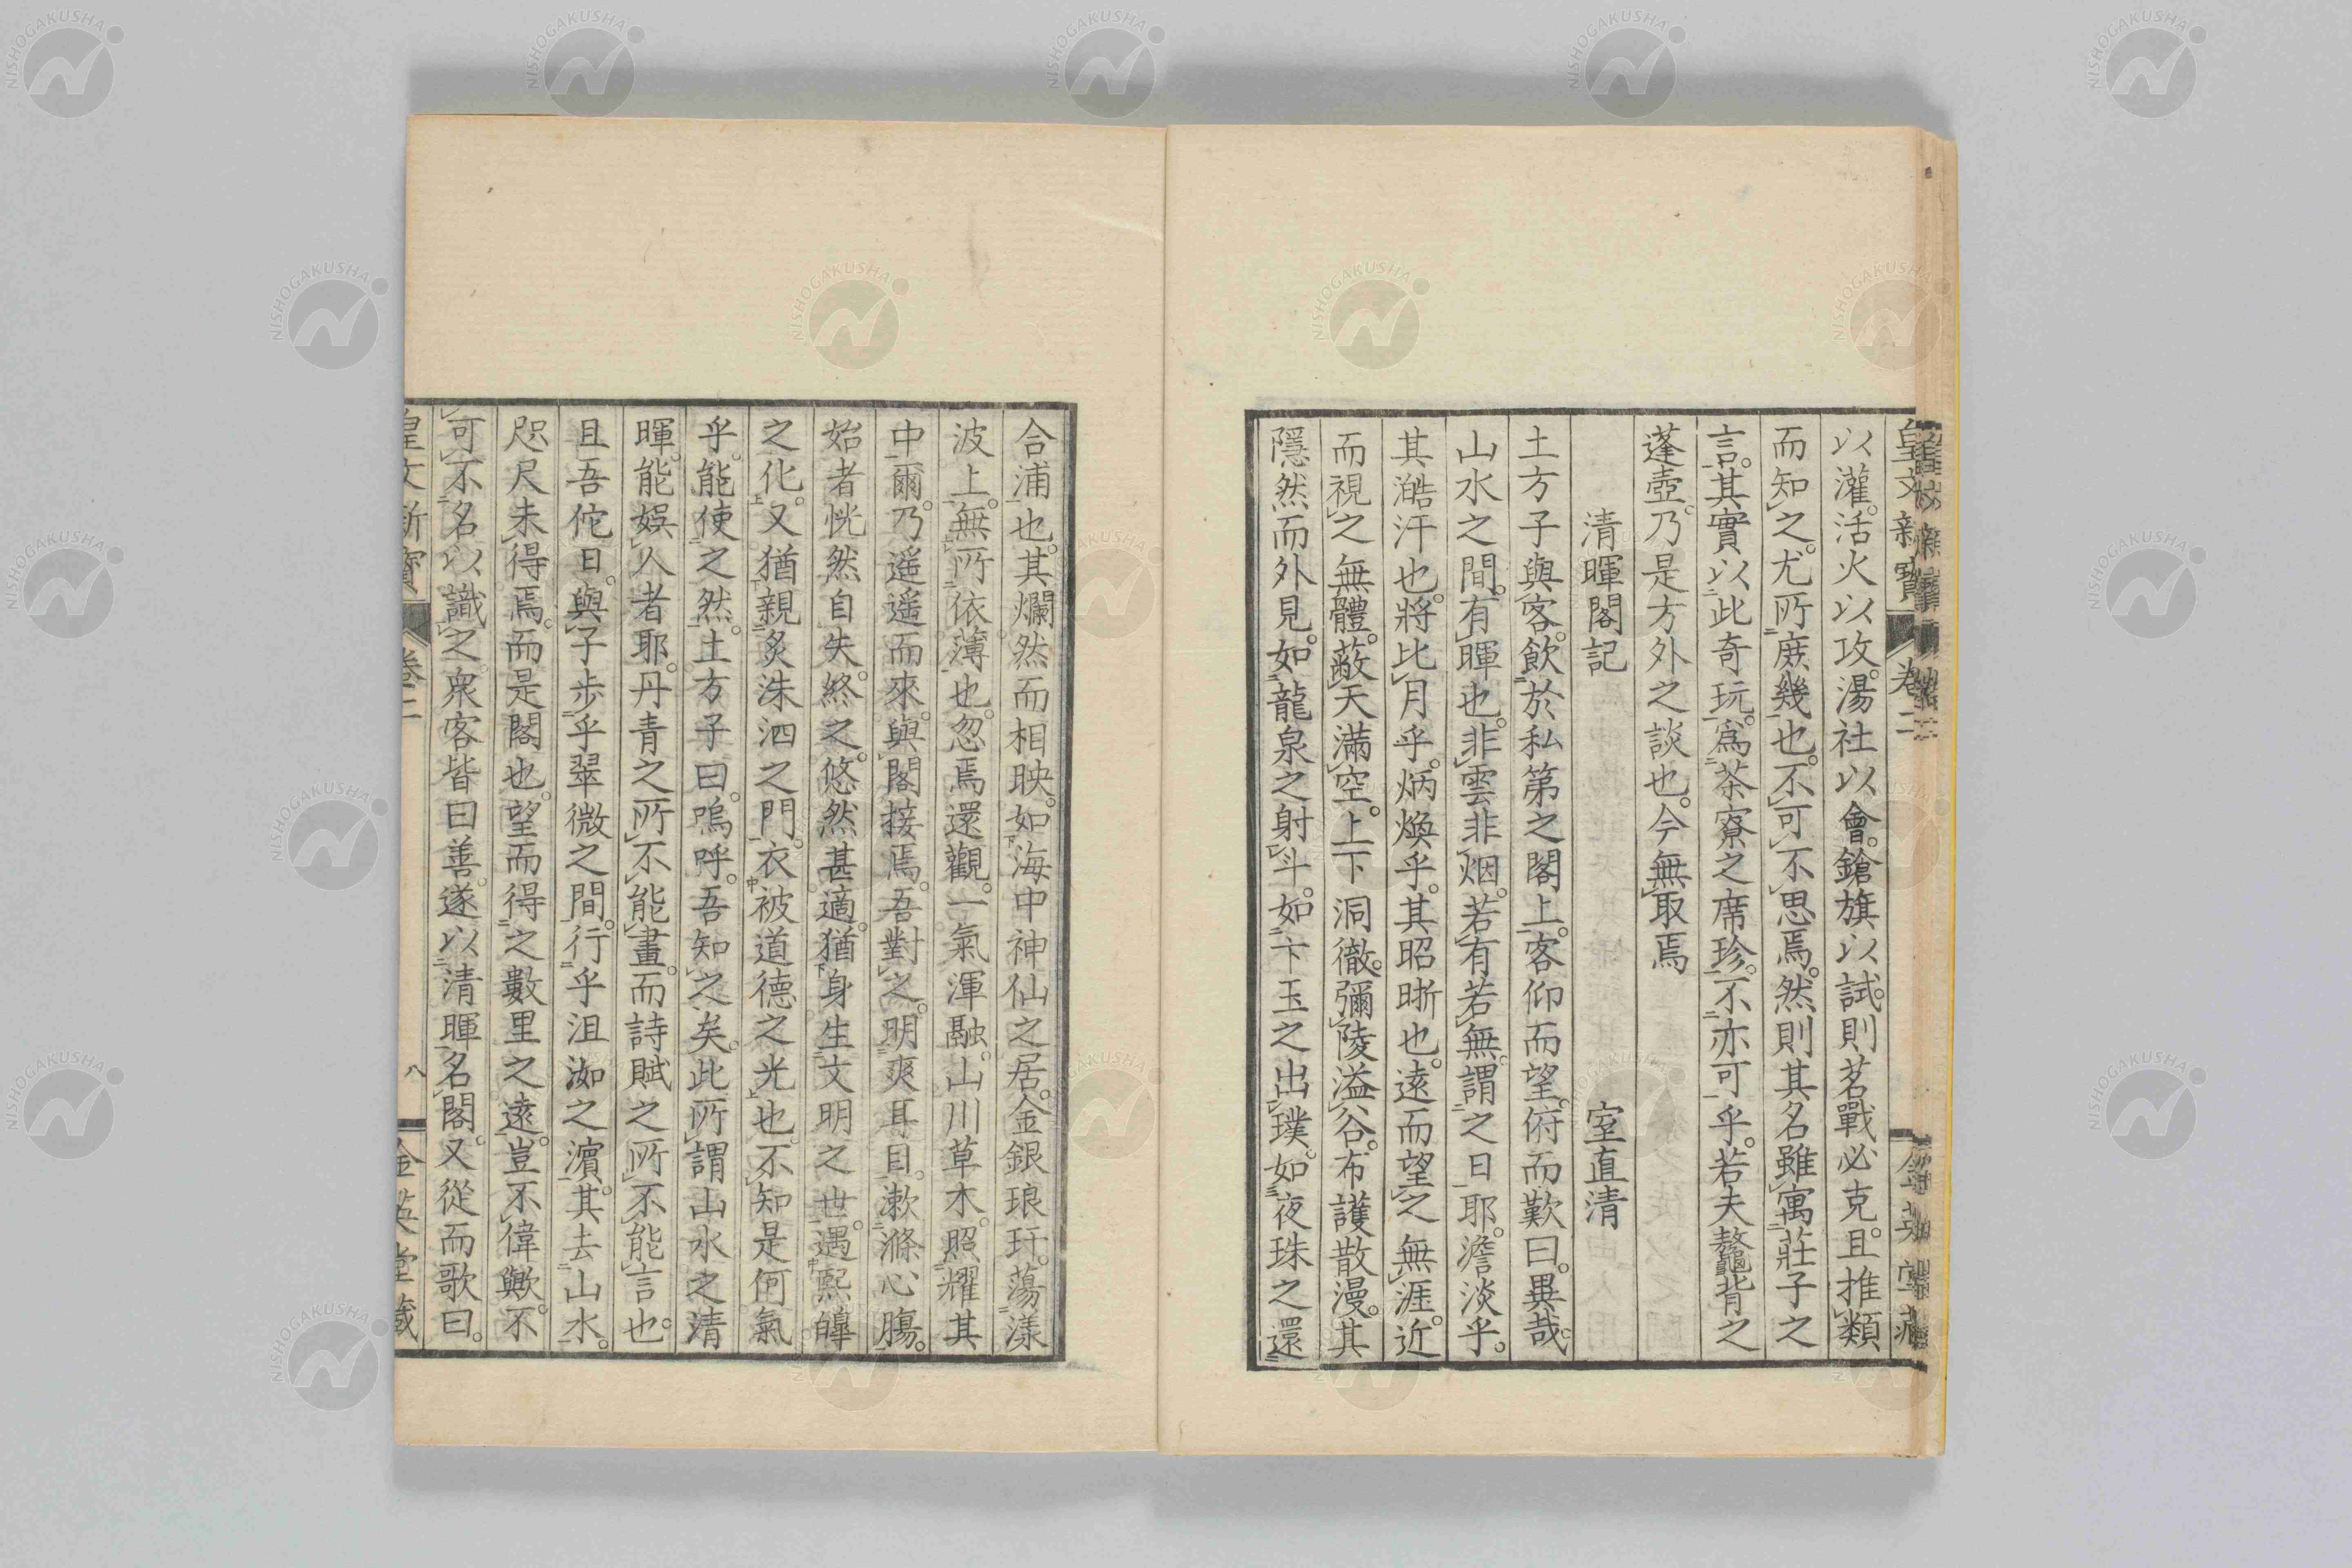 皇文新寶 卷二
以灌。活火以攻。湯社以會。鎗旗以試。則茗戰必克。且推類
而知之。尤所庶幾也。不可不思焉。然則其名雖寓莊子之
言。其實以此奇玩。爲茶寮之席珍。不亦可乎。若夫鼇背之
蓬壺。乃是方外之談也。今無取焉
清暉閣記 室直清
土方子與客。飲於私第之閣上。客仰而望。俯而歎曰。異哉
山水之間。有暉也。非雲非烟。若有若無。謂之日耶。澹淡乎。
其澔汗也。將比月乎。炳煥乎。其昭晣也。遠而望之無涯。近
而視之無體。蔽天滿空。上下洞徹。彌陵溢谷。布護散漫。其
隱然而外見。如龍泉之射斗。如卞玉之出璞。如夜珠之還
合浦也。其爛然而相映。如海中神仙之居。金銀琅玕。蕩漾
波上。無所依薄也。忽焉還觀。一氣渾融。山川草木。照耀其
中爾。乃遥遥而來。與閣接焉。吾對之。明爽耳目。漱滌心膓。
始者恍然自失。終之。悠然甚適。猶身生文明之世。遇熙皡
之化。又猶親炙洙泗之門。衣被道德之光也。不知是何氣
乎。能使之然。土方子曰。嗚呼。吾知之矣。此所謂山水之清
暉。能娯人者耶。丹青之所不能畫。而詩賦之所不能言也。
且吾佗日。與子步乎翠微之間。行乎沮洳之濵。其去山水。
咫尺未得焉。而是閣也。望而得之數里之遠。豈不偉歟。不
可不名以識之。衆客皆曰善。遂以清暉名閣。又從而歌曰。
皇文新寶 卷二 八 金英堂藏